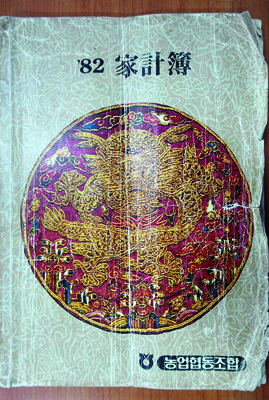 '82 家計簿
농업협동조합